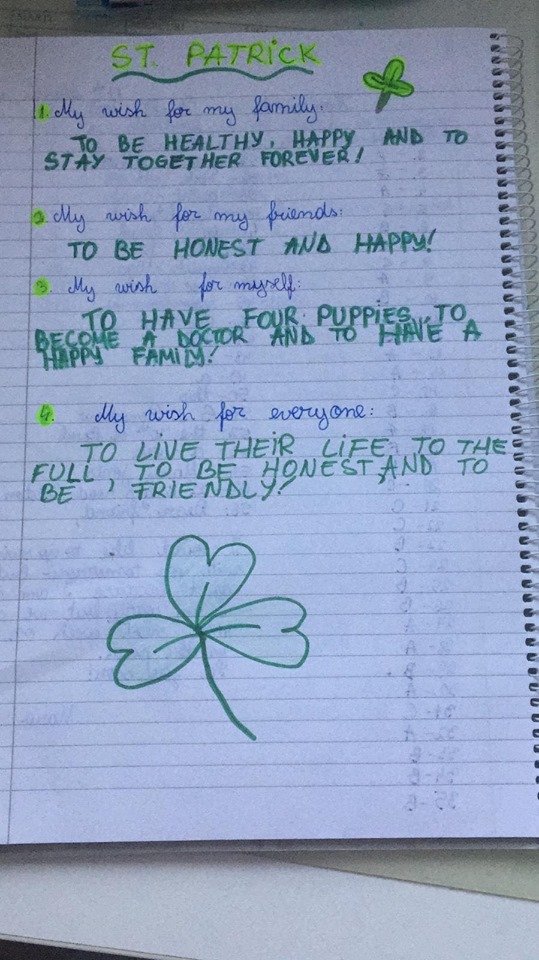 ST. PATRICK
1. My wish for my family:
TO BE HEALTHY, HAPPY AND TO
STAY TOGETHER FOREVER!
2. My wish for my friends:
TO BE HONEST AND HAPPY!
3. My wish for myself:
TO HAVE FOUR PUPPIES, TO
BECOME A DOCTOR AND TO HAVE A
HAPPY FAMILY!
4. My wish for everyone:
TO LIVE THEIR LIFE TO THE
FULL, TO BE HONEST AND TO
BE FRIENDLY!